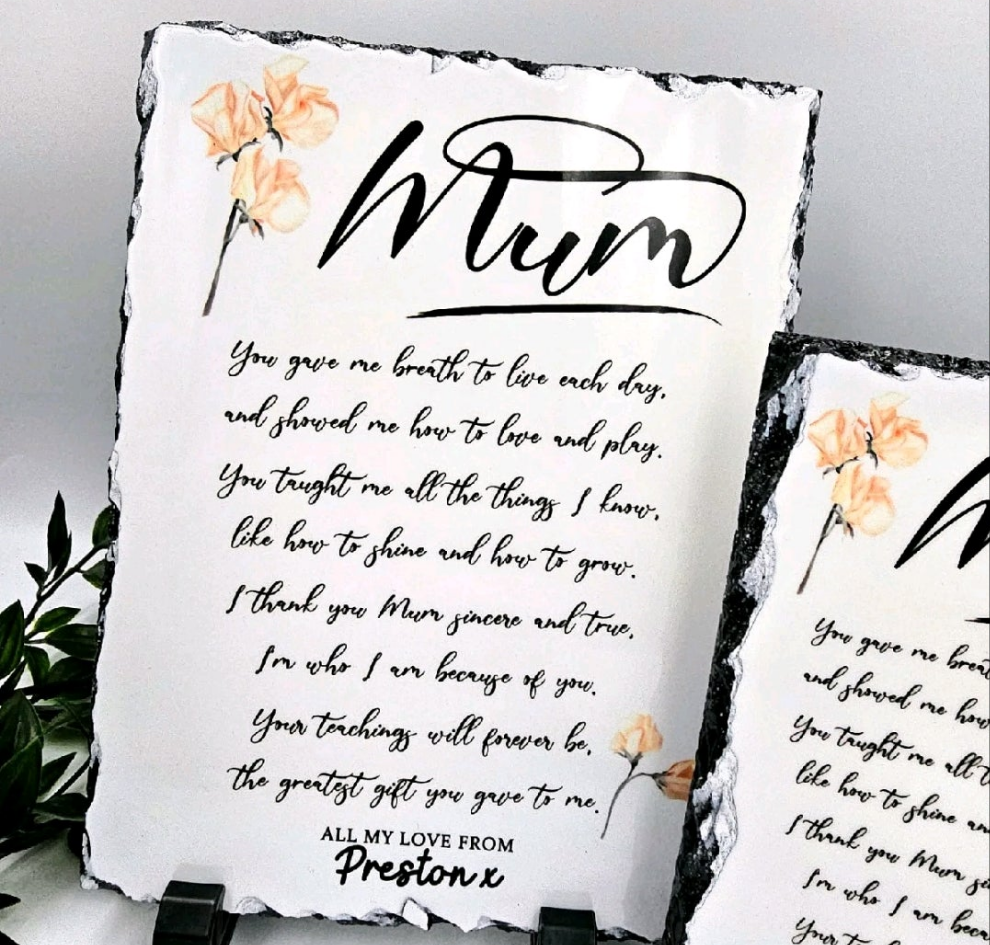 Mum
You gave me breath to live each day,
and showed me how to love and play.
You taught me all the things I know,
like how to shine and how to grow.
I thank you Mum sincere and true,
I'm who I am because of you.
Your teachings will forever be,
the greatest gift you gave to me.
ALL MY LOVE FROM
Preston x
You gave me
and showed me how
You taught me all
like how to shine
I thank you Mum
I'm who I am
Your